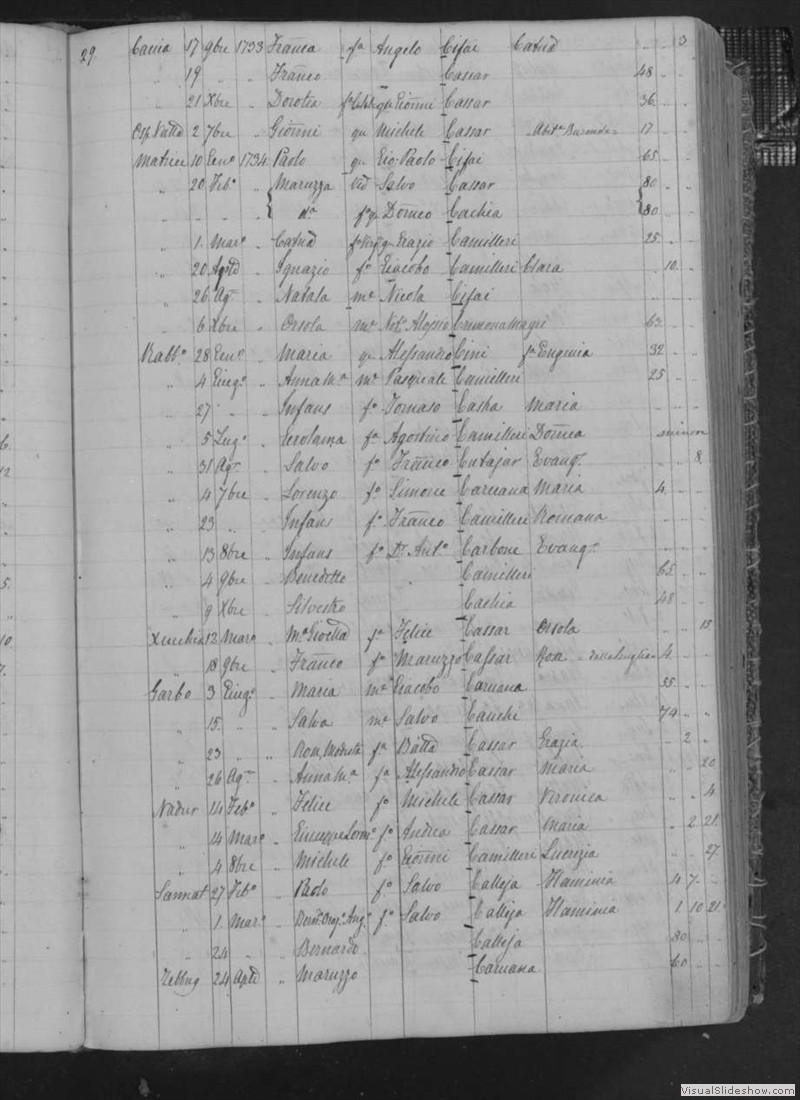 29. Cacia 17 9bre 1733 Franca fa Angelo Cifai Catnd 3
" 19 " " Franco Cassar 48
" 21 Xbre " Dorotea qu Gionni Cassar 36
2 7bre " Gionni qu Michele Cassar 17
Matrice 10 Geno 1734 Paolo qu Gio: Paolo Cifai 65
" 20 Febo " Maruzza Ved Salvo Cassar 80
" " " " da fa qu Domco Cachia 80
" 1 Maro " Catnd qu Grazio Camilleri 25
" 20 " Ignazio fo Giacobo Camilleri Clara 10
" 26 Ago " Natala me Nicola Cifai
" 6 Xbre " Orsola me Nobe Aloysio 63
Rabbo 28 Geno " Maria qu Alessandro Cini fa Eugenia 32
" 4 Giugo " Anna Ma me Pasquale Camilleri 25
" 27 " " Infans fo Tomaso Casha Maria
" 5 Lugo " Gerolama fa Agostino Camilleri Domca minore
" 31 Ago " Salvo fo Franco Cutajar Evanga 8
" 4 7bre " Lorenzo fo Simone Caruana Maria 4
" 23 " " Infans fo Franco Camilleri Romana
" 13 8bre " Infans fo Dr Anto Carbone Evanga
" 4 9bre " Benedetto Camilleri 65
" 9 Xbre " Silvestro Cachia 48
Xeuchia 12 Maro " Ma fa Felice Cassar Orsola 15
" 18 9bre " Franco fo Maruzzo Cassar Rosa 4
Garbo 3 Giugo " Maria me Giacobo Caruana 55
" 15 " " Salva me Salvo Cauchi 74
" 23 " " Rosa, Modesta fa Batta Cassar Grazia 2
" 26 Ago " Anna Ma fa Alessandro Cassar Maria 20
Nadur 14 Febo " Felice fo Michele Cassar Vironica 4
" 14 Maro " Giuseppe fo Andrea Cassar Maria 2 21
" 4 8bre " Michele fo Gionni Camilleri Lucrezia 27
Sannat 27 Febo " Paolo fo Salvo Calleja Flaminia 4 7
" 1 Maro " fo Salvo Calleja Flaminia 1 10 21
" 24 " " Bernardo Calleja 80
Zebbug 24 " Maruzzo Caruana 60
VisualSlideshow.com